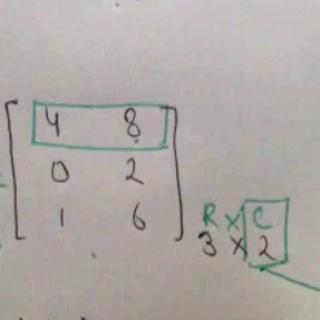 4 8
0 2
1 6
R x C
3 x 2